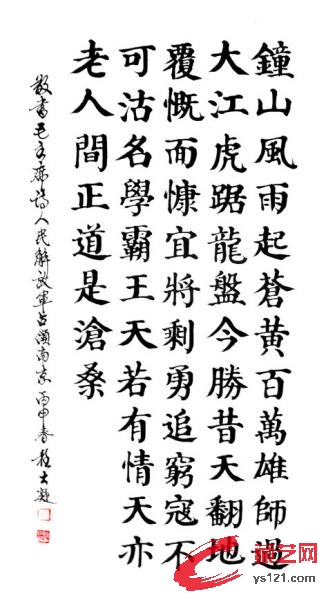 鐘山風雨起蒼黃百萬雄師過
大江虎踞龍盤今勝昔天翻地
覆慨而慷宜將剩勇追窮寇不
可沽名學霸王天若有情天亦
老人間正道是滄桑
敬書毛主席詩人民解放軍占領南京丙申春
艺网
ys121.com